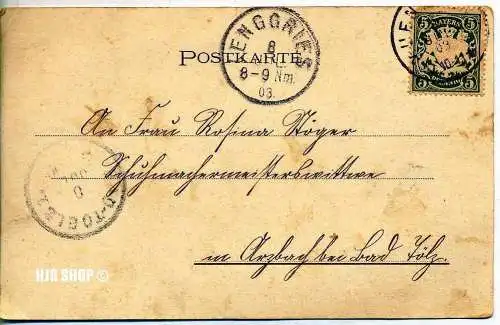 POSTKARTE
LENGGRIES
8
8-9 Nm.
03.
5 BAYERN 5
5 5
An Frau Rosina Stöger
Schuhmachermeisterswittwe
in Arzbach bei Bad Tölz.
HJR SHOP ©